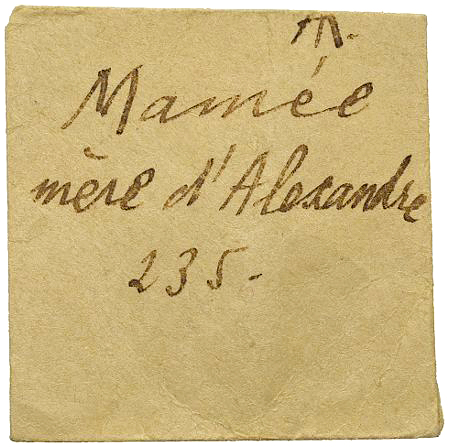 Mamée
mère d'Alexandre
235.